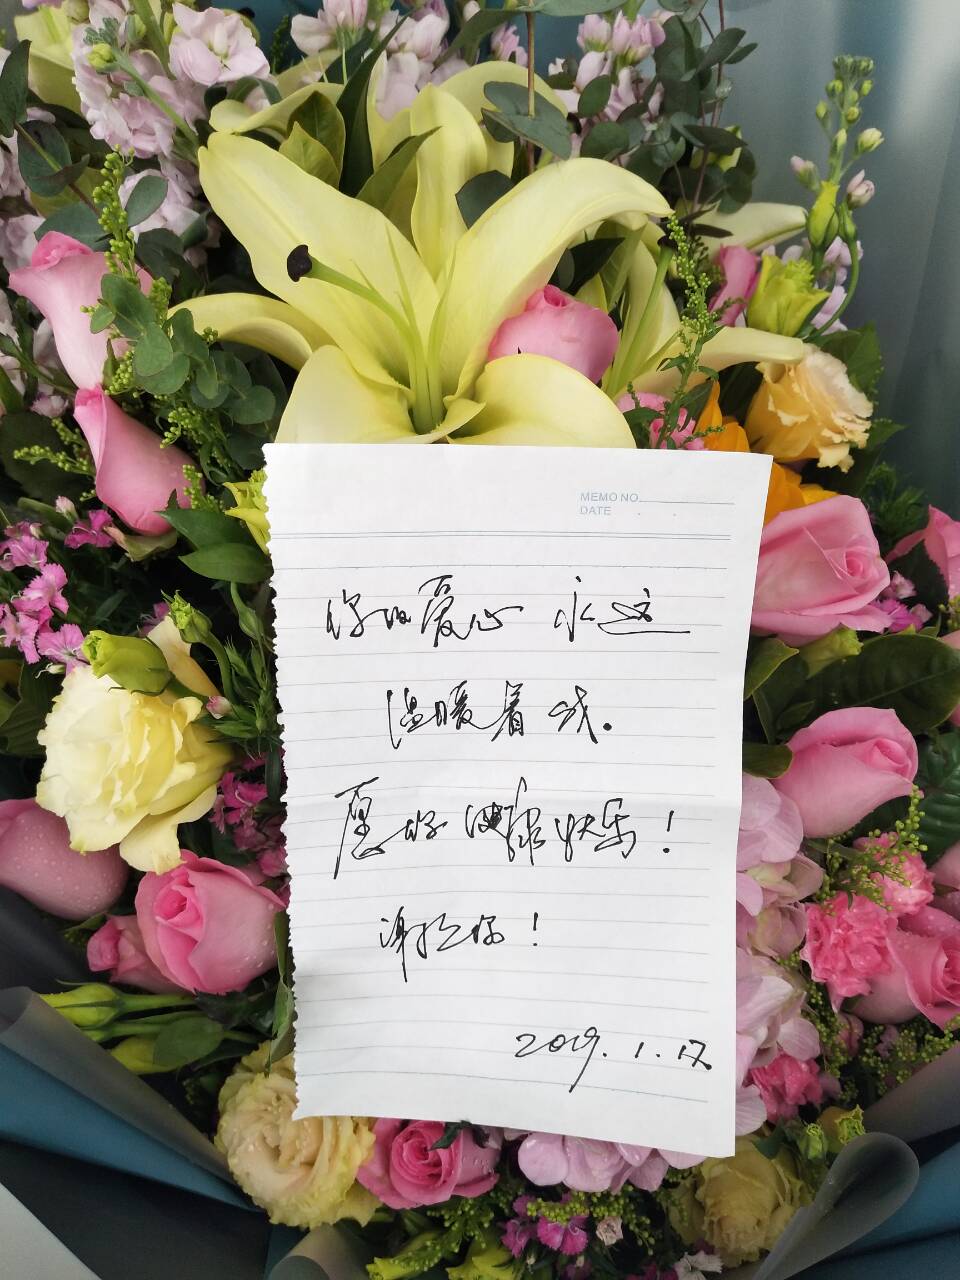 MEMO NO.
DATE
你的爱心 永远
温暖着我.
愿你健康快乐!
谢谢你!
2019.1.17.